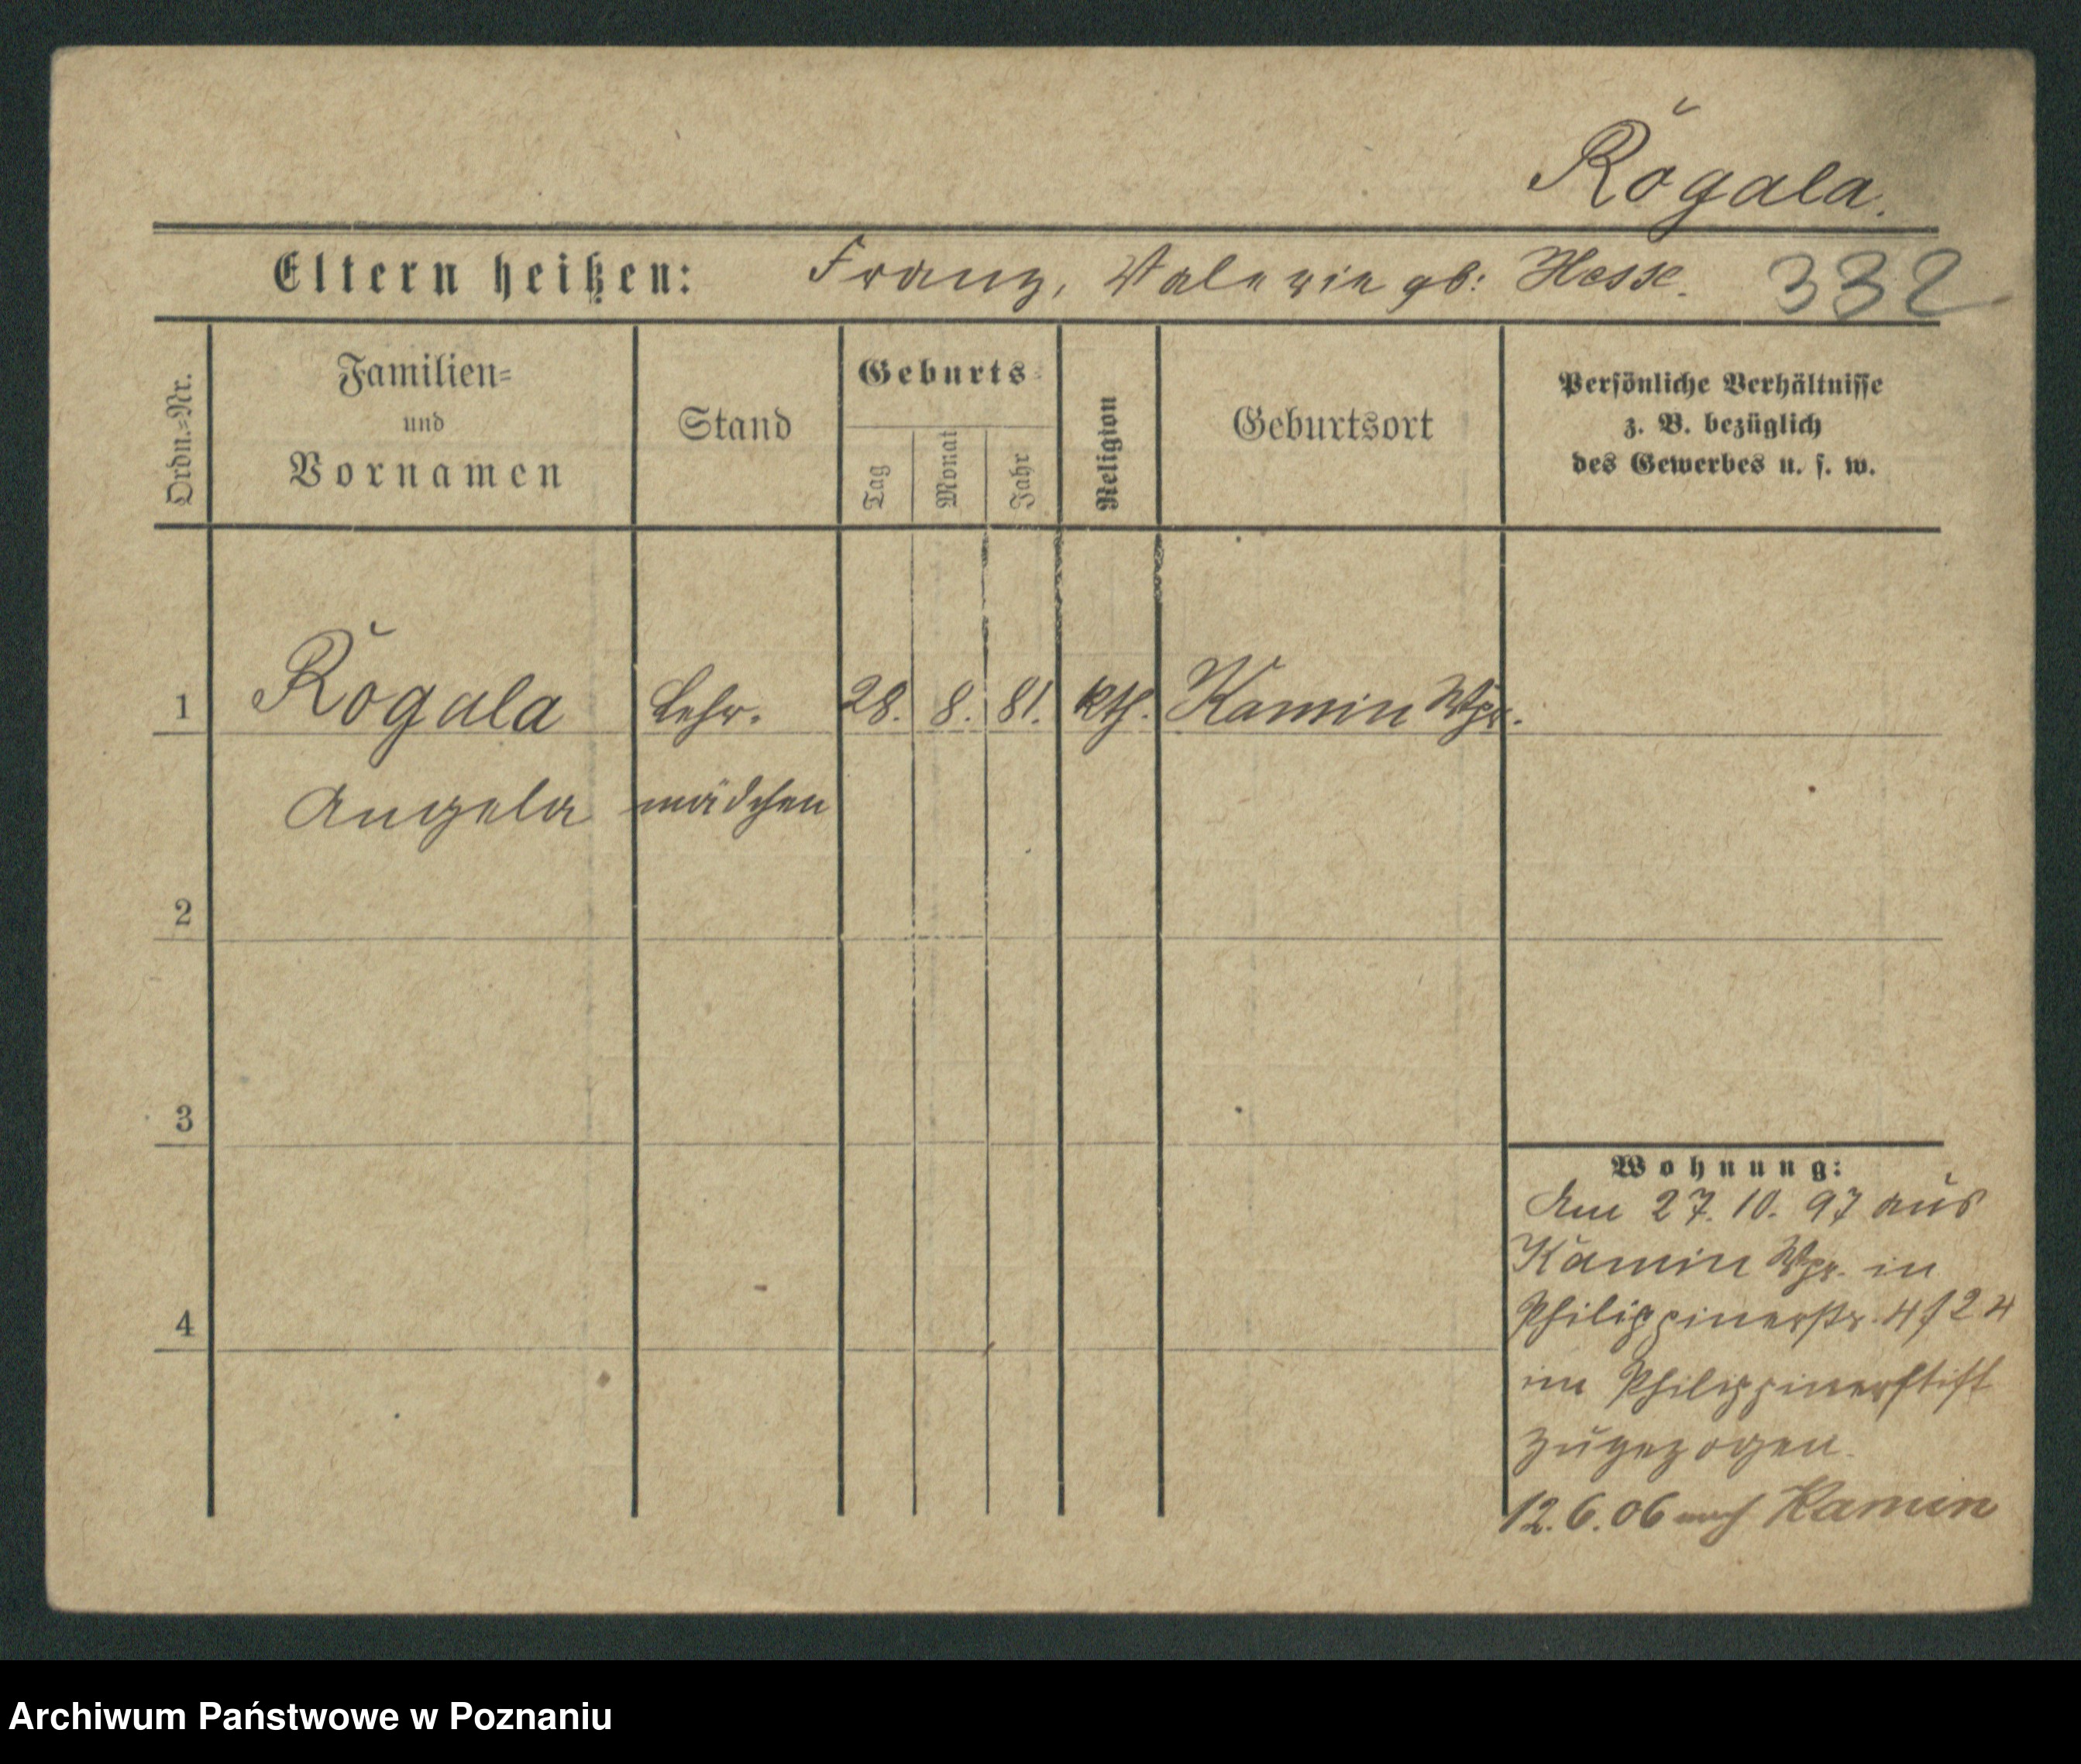 Rogala.
Eltern heißen: Franz, Valerie gb: Hesse. 332
Ordn.=Nr.
Familien=
und
Vornamen
Stand
Geburts=
Tag
Monat
Jahr
Religion
Geburtsort
Persönliche Verhältnisse
z. B. bezüglich
des Gewerbes u. s. w.
1 Rogala Lehr. 28. 8. 81. kth. Kamin Wpr.
Angela mädchen
2
3
4
Wohnung:
Am 27. 10. 97 aus
Kamin Wpr. in
Philippinerstr. 4/24
im Philippinerstift
zugezogen.
12. 6. 06 nach Kamin
Archiwum Państwowe w Poznaniu